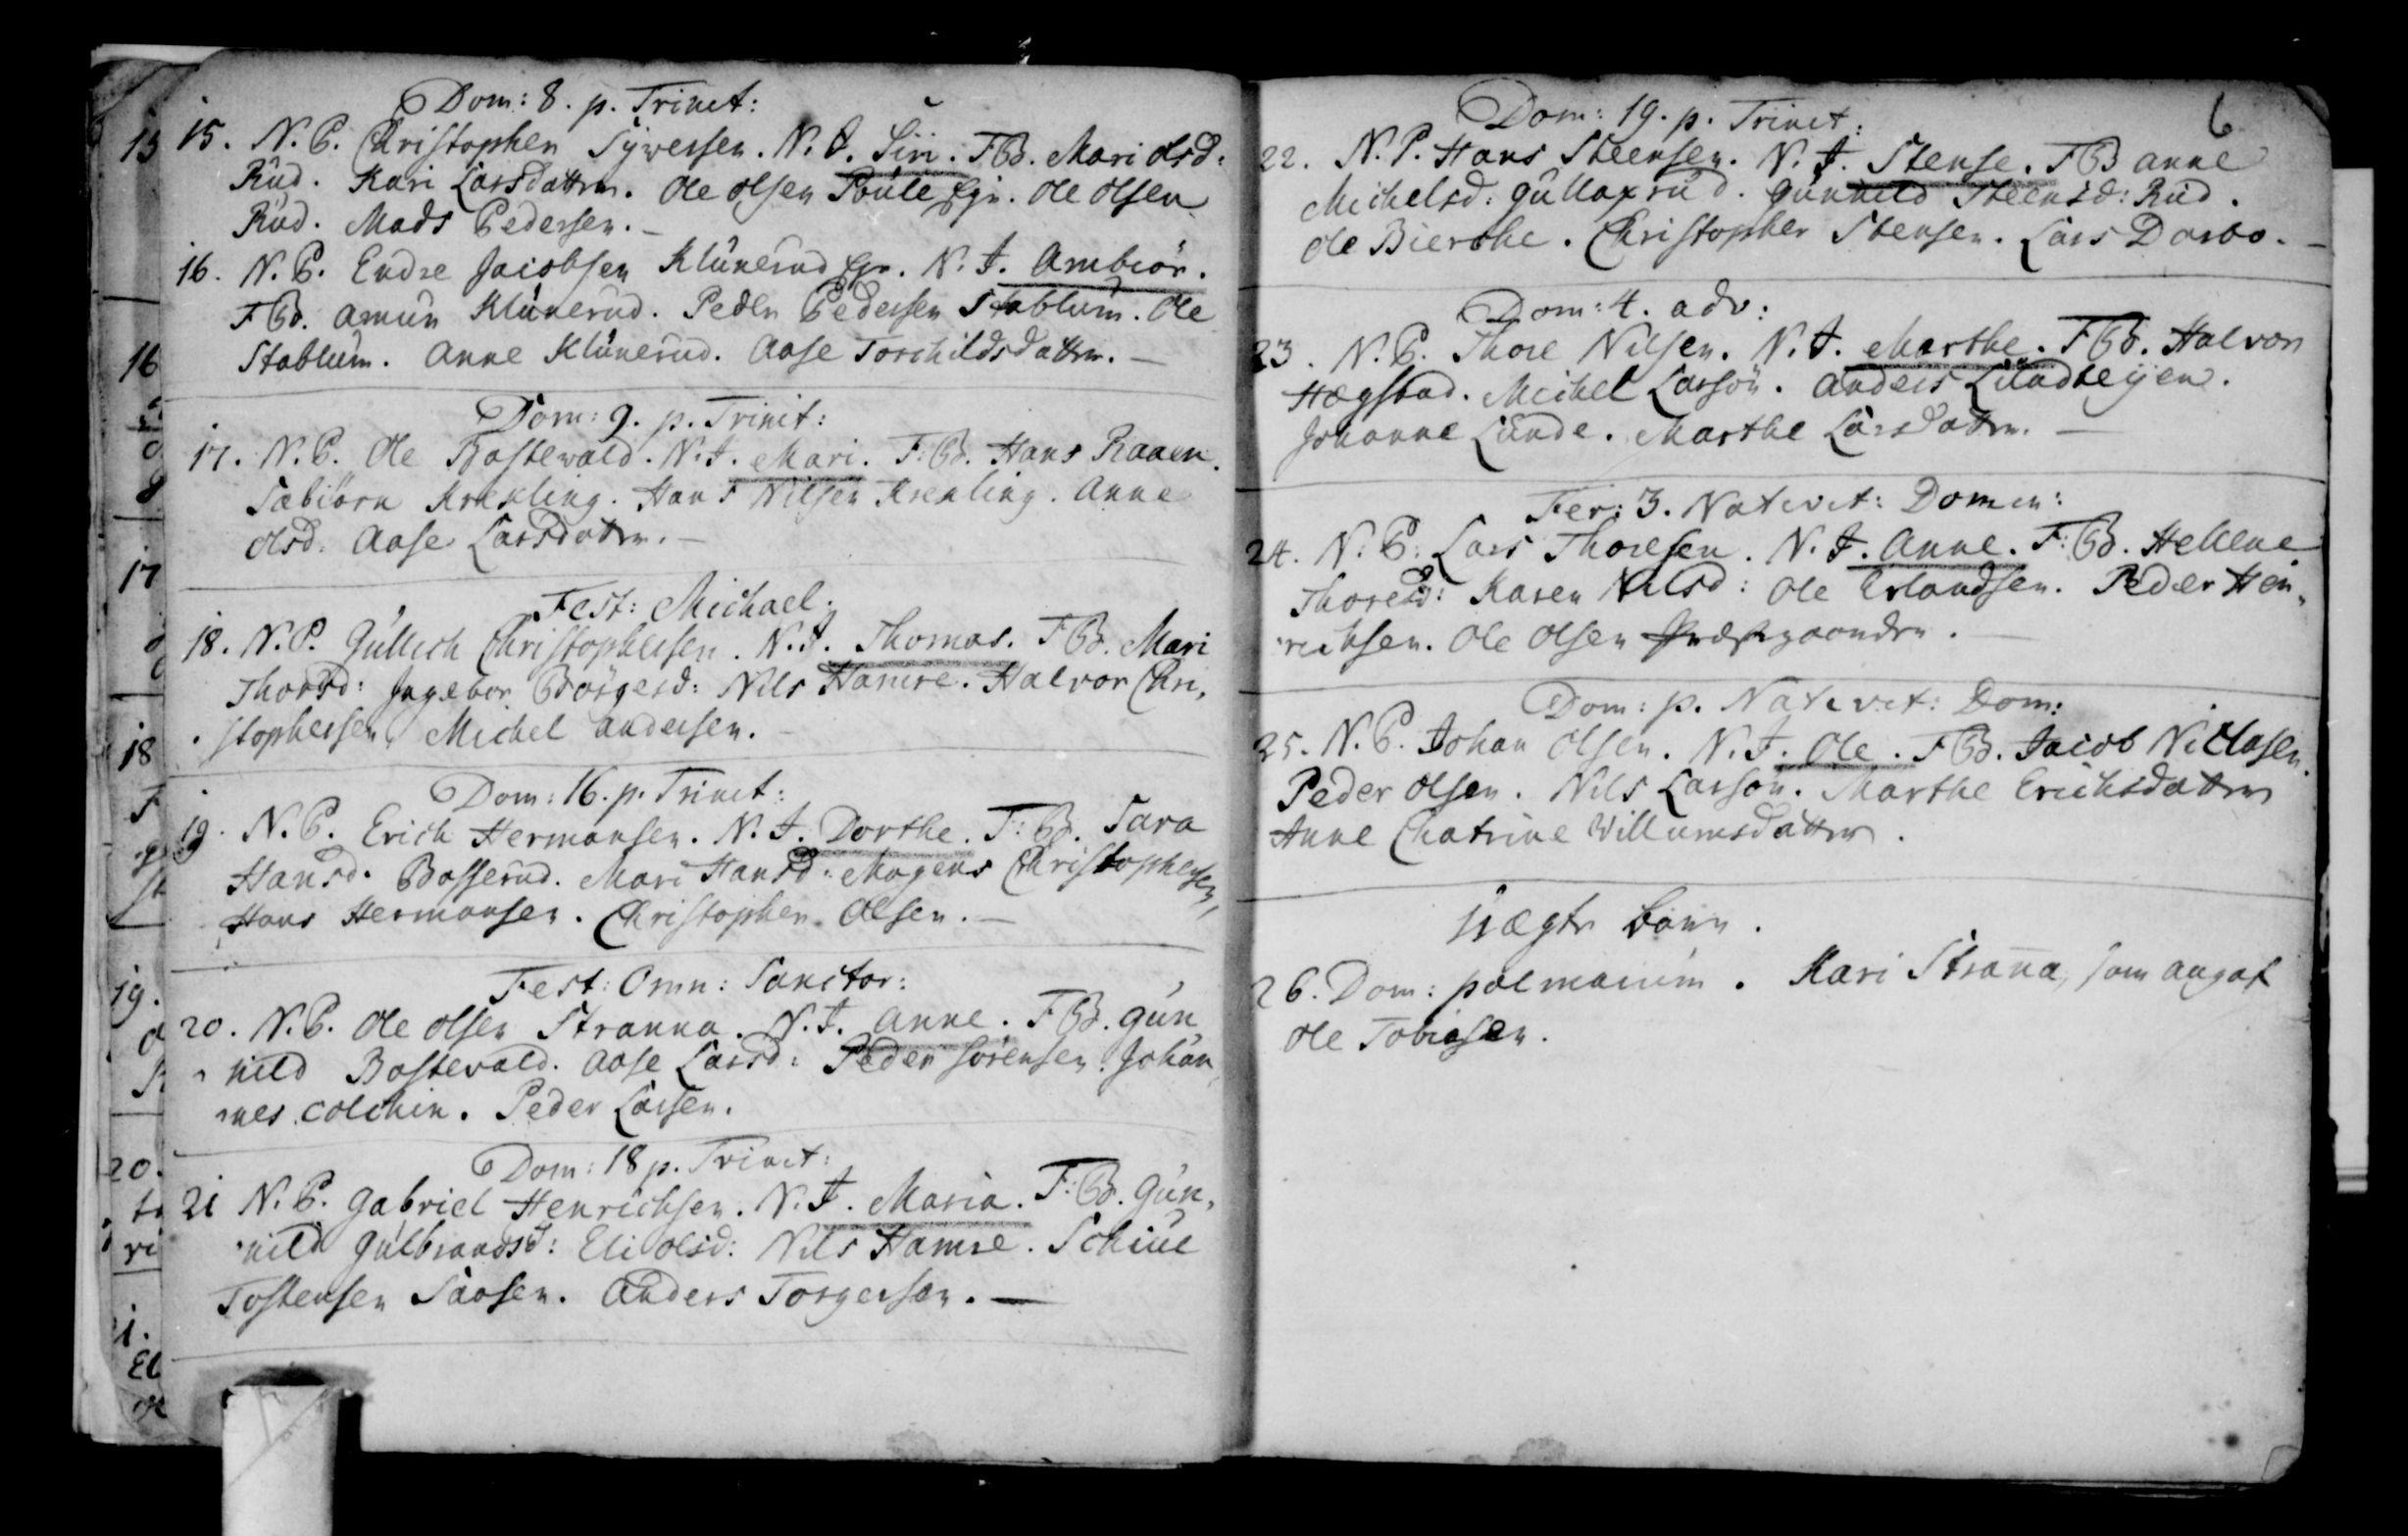 Dom: 8. p. Trinit:
15. N. P. Christopher Sÿversen. N. I. Siri. F B. Mari olsd:
Rüd. Kari Larsdatter. Ole olsen Poüle Egr. Ole olsen
Rüd. Mads Pedersen.
16. N. P. Endre Jacobsen Klünerud Egr. N. I. Ambiör.
F B. Amün Klünerud. Peder Pedersen Stablum. Ole
Stablum. Anne Klünerud. Aase Torchildsdatter. —
Dom: 9. p. Trinit:
17. N. P. Ole Bostewald. N. I. Mari. F: B. Hans Raaen.
Sæbiörn Krekling. Hans Nilsen Krekling. Anne
olsd. Aase Larsdatter. —
Fest: Michael.
18. N. P. Güllich Christophersen. N. I. Thomas. F B. Mari
Thorsd: Ingebor Börgesd: Nils Hamre. Halvor Chri,
stophersen, Michel andersen.
Dom: 16. p. Trinit:
19. N. P. Erich Hermansen. N. I. Dorthe. F: B. Sara
Hansd. Bosserud. Mari Hansd: Mogens Christophersen,
Hans Hermansen. Christopher Olsen. —
Fest: Omn: Sanctor:
20. N. P. Ole olsen Stranna. N. I. Anne. F B. Gün,
nild Bostevald. Aase Larsd: Peder Sörensen. Johan,
nes Colchin. Peder Larsen.
Dom: 18 p. Trinit:
21 N. P. Gabriel Henrichsen. N. I. Maria. F: B. Gün,
nild Gülbrandsd: Eli olsd: Nils Hamre. Schiüe
Tostensen Saasen. Anders Torgersen. —
6
Dom: 19. p. Trinit:
22. N. P. Hans Steensen. N. I. Stense. F B Anne
Michelsd: Güllaxrüd. Günnild Steensd: Rüd.
Ole Bierche. Christopher Stensen. Lars Darbo. —
Dom: 4. adv:
23. N. P. Thore Nilsen. N. I. Marthe. F B. Halvor
Hægstad. Michel Larsön. Anders Lündteÿen.
Johanne Lünde. Marthe Larsdatter. —
Fer: 3. Nativit: Domin:
24. N. P. Lars Thoresen. N. I. Anne. F: B. Hellene
Thoresd: Karen Nilsd: Ole Erlandsen. Peder Hen,
richsen. Ole Olsen Præstgaarden. —
Dom: p. Nativit: Dom:
25. N. P. Johan Olsen. N. I. Ole. F B. Jacob Niclasen.
Peder Olsen. Nils Larsön. Marthe Erichsdatter
Anne Chatrine Willumsdatter.
Uægte børn.
26. Dom: palmarum. Kari Strana, som angaf
Ole Tobiasen.